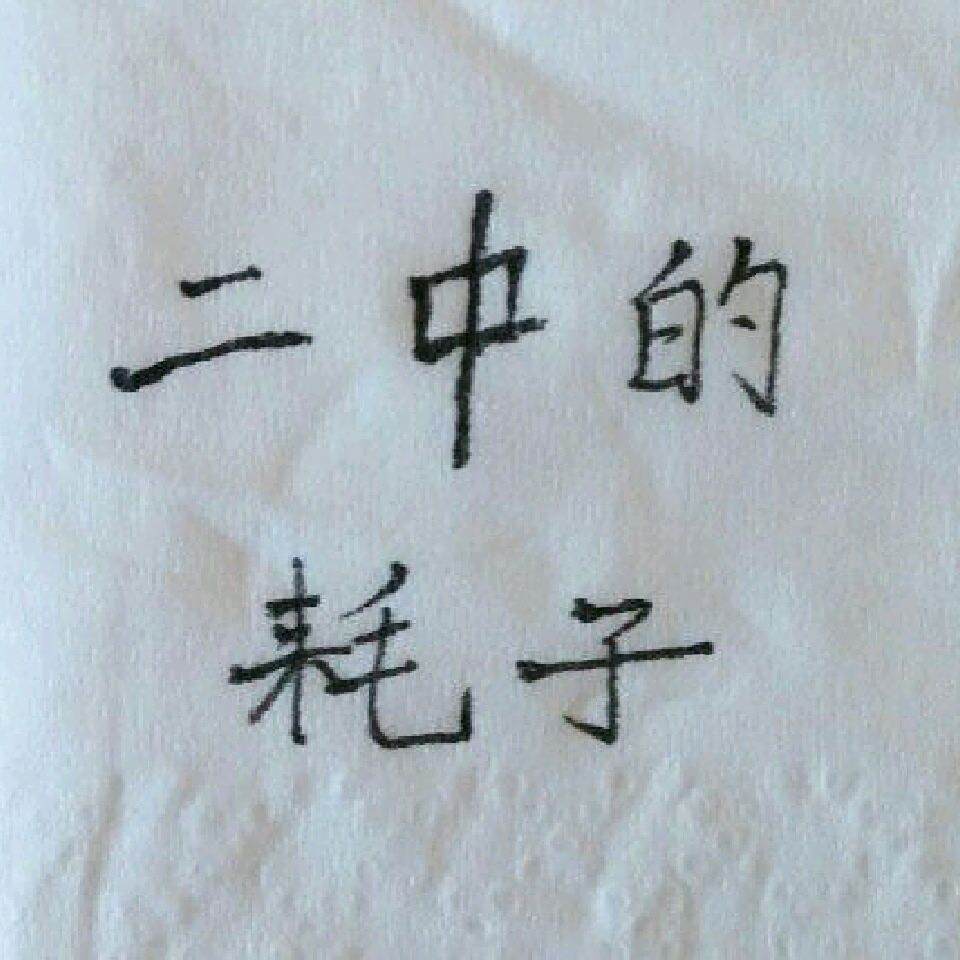 二中的
耗子